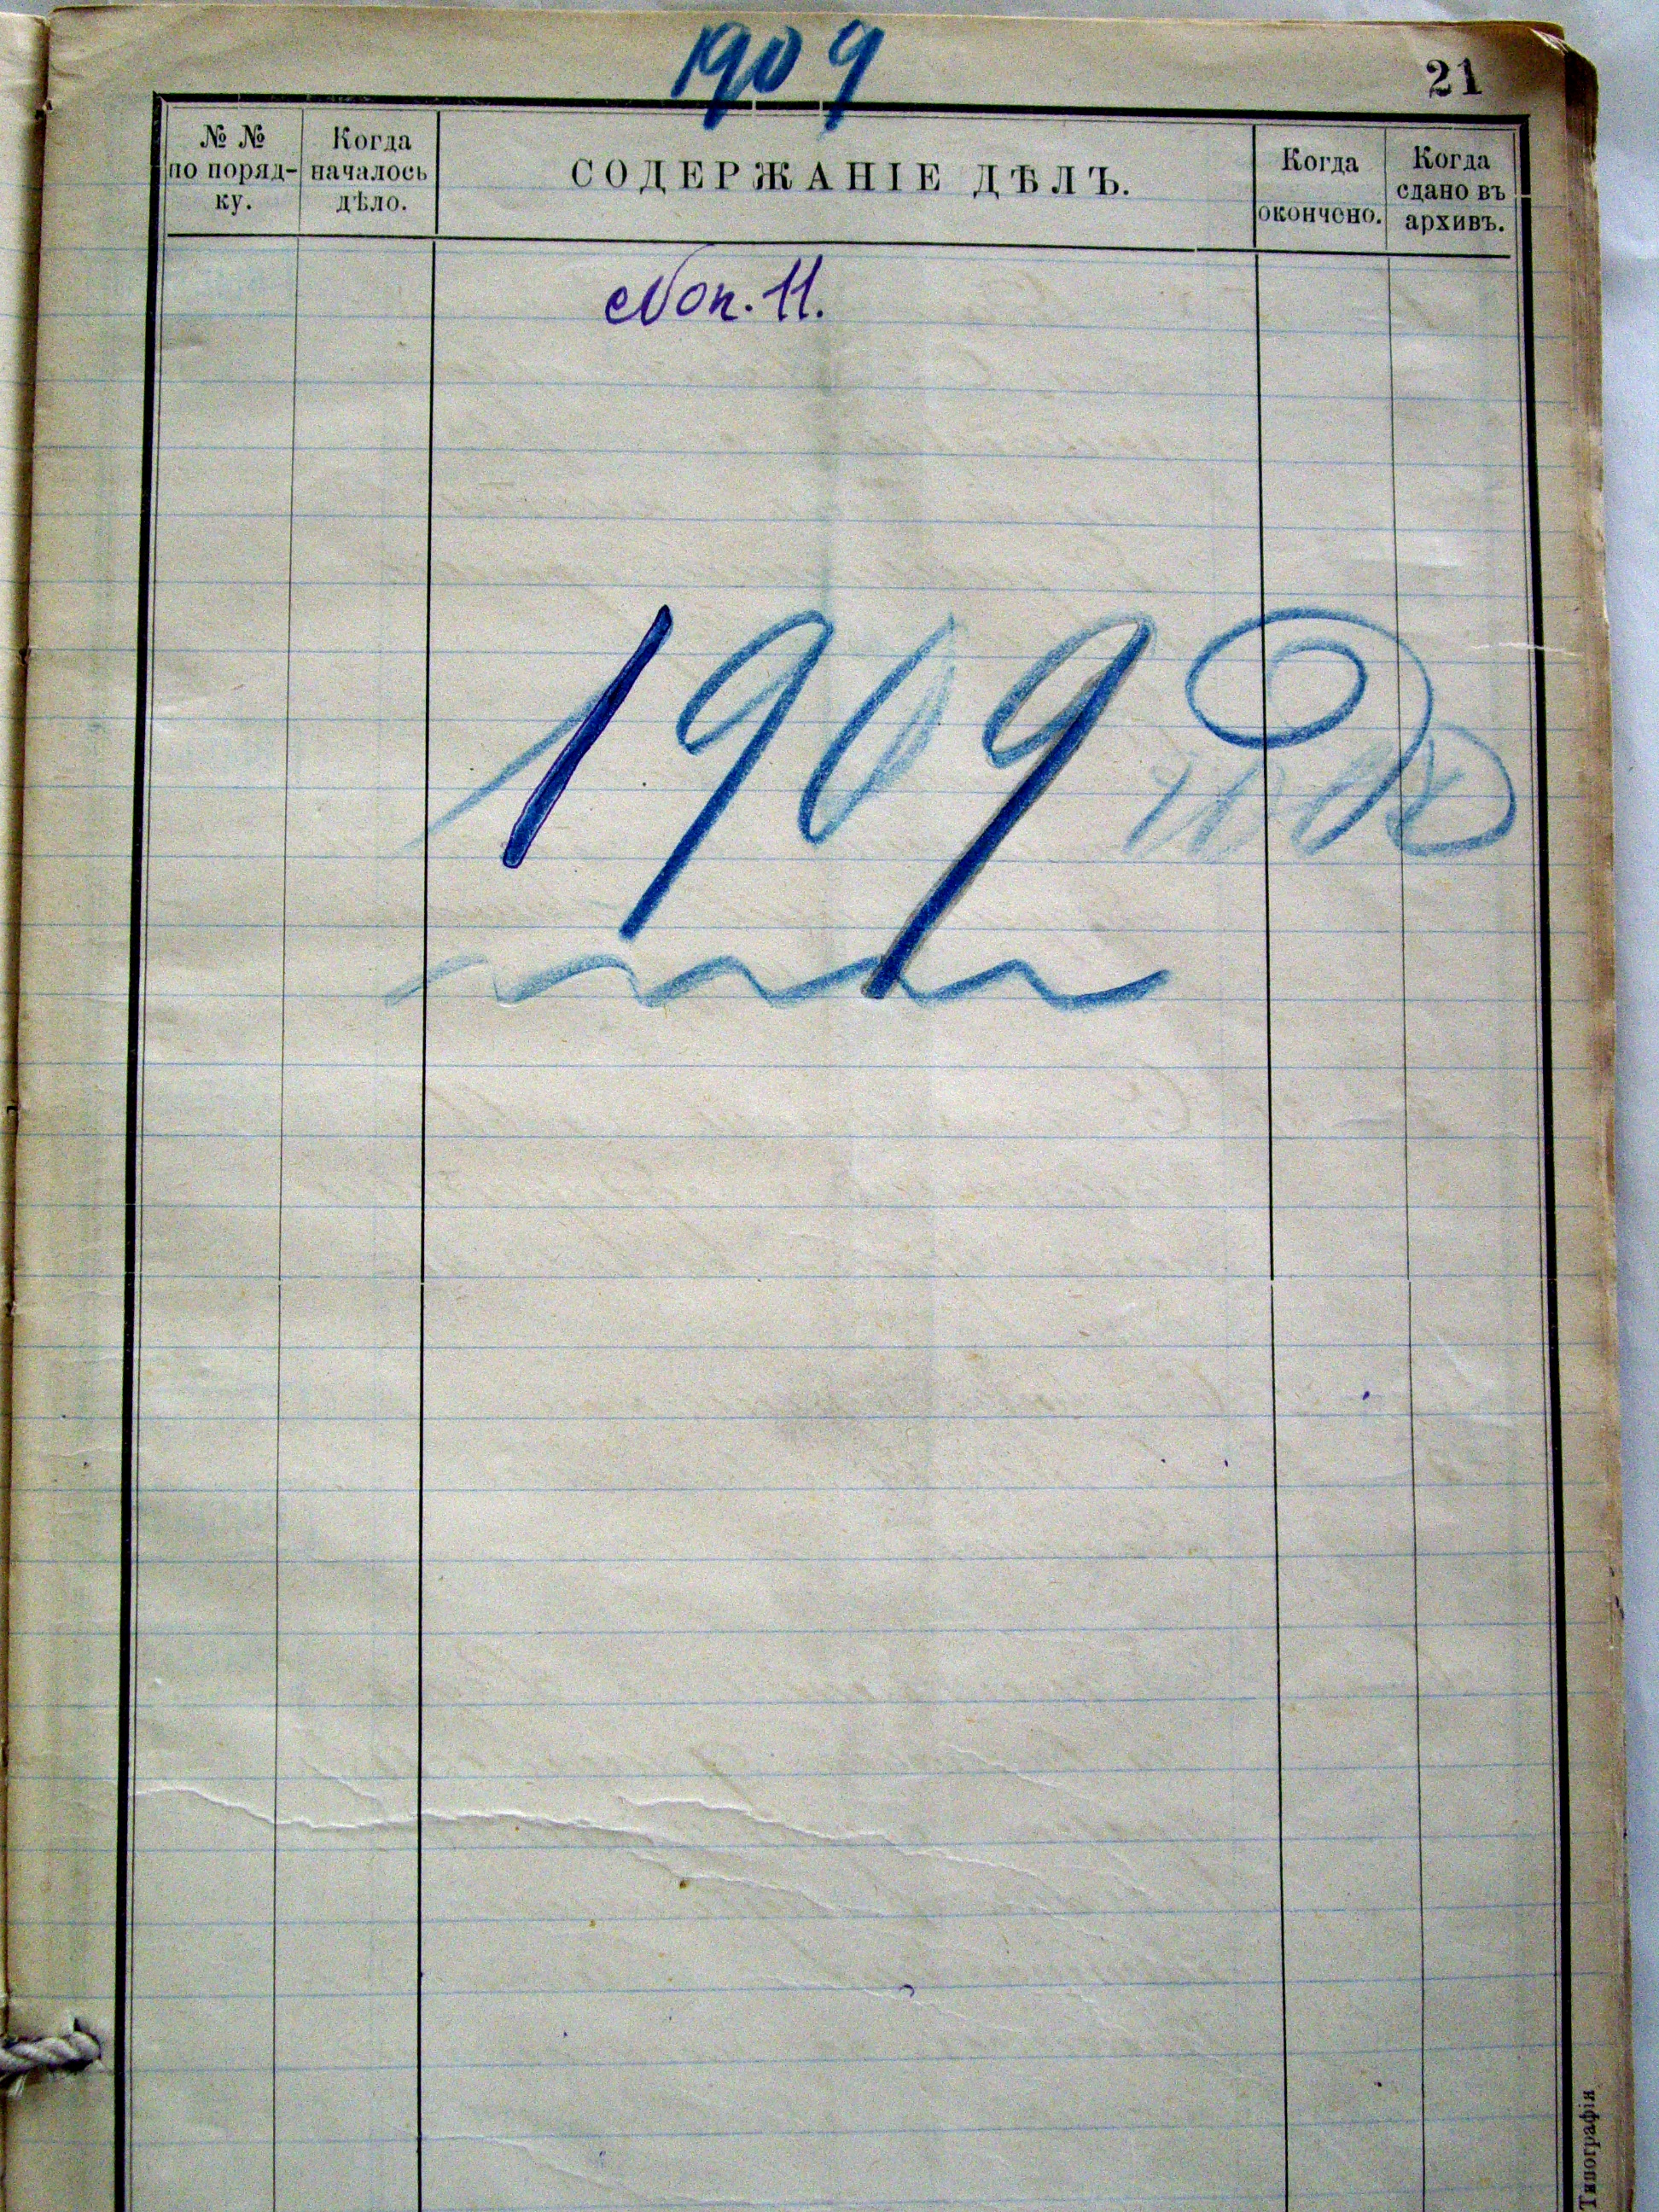 1909
21
№ №
по поряд-
ку.
Когда
началось
дѣло.
СОДЕРЖАНІЕ ДѢЛЪ.
Когда
окончено.
Когда
сдано въ
архивъ.
Оп. 11.
1909 годъ
Типографія